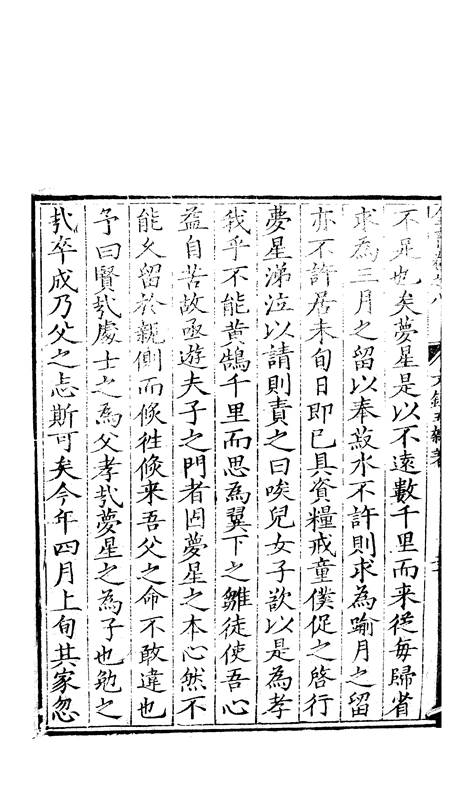 不足也矣夢星是以不遠數千里而来從每歸省
求為三月之留以奉菽水不許則求為踰月之留
亦不許居未旬日即已具資糧戒童僕促之啓行
夢星涕泣以請則責之曰唉兒女子欲以是為孝
我乎不能黄鵠千里而思為翼下之雛徒使吾心
益自苦故亟遊夫子之門者固夢星之本心然不
能久留於親側而倐徃倐来吾父之命不敢違也
予曰賢㢤處士之為父孝㢤夢星之為子也勉之
㢤卒成乃父之志斯可矣今年四月上旬其家忽